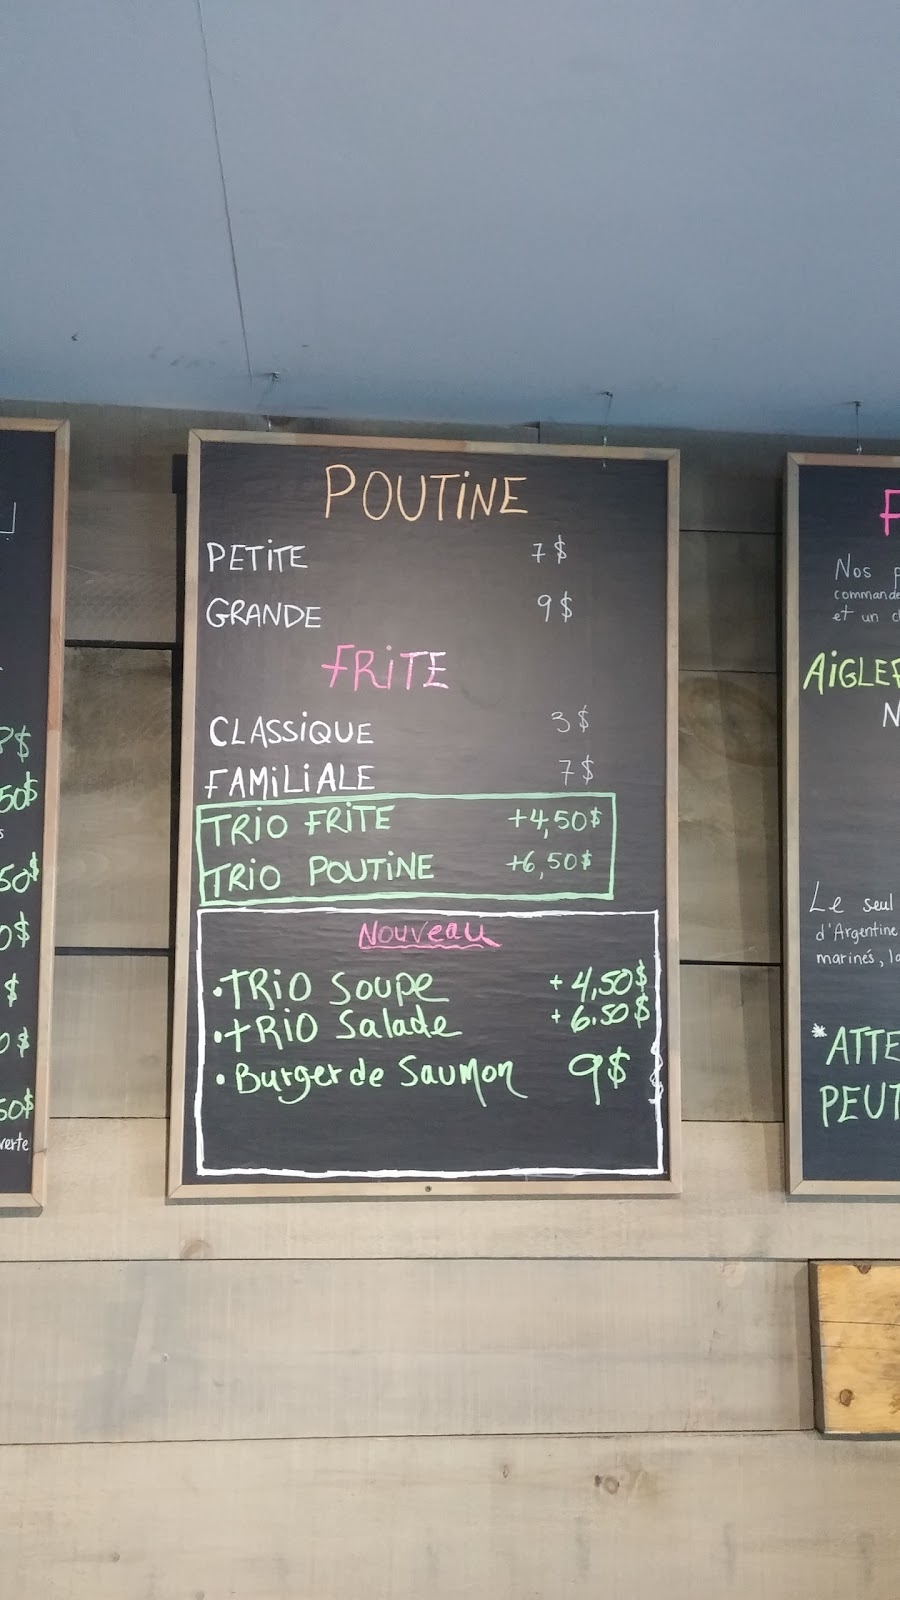 POUTINE
PETITE 7$
GRANDE 9$
FRITE
CLASSIQUE 3$
FAMILIALE 7$
TRIO FRITE +4,50$
TRIO POUTINE +6,50$
Nouveau
•TRIO Soupe +4,50$
•tRIO Salade +6.50$
•Burger de Saumon 9$
50$
50$
0$
$
0$
50$
verte
Nos
commande
et un
AIGLEF
N
Le seul
d'Argentine
marinés, la
*ATTE
PEUT